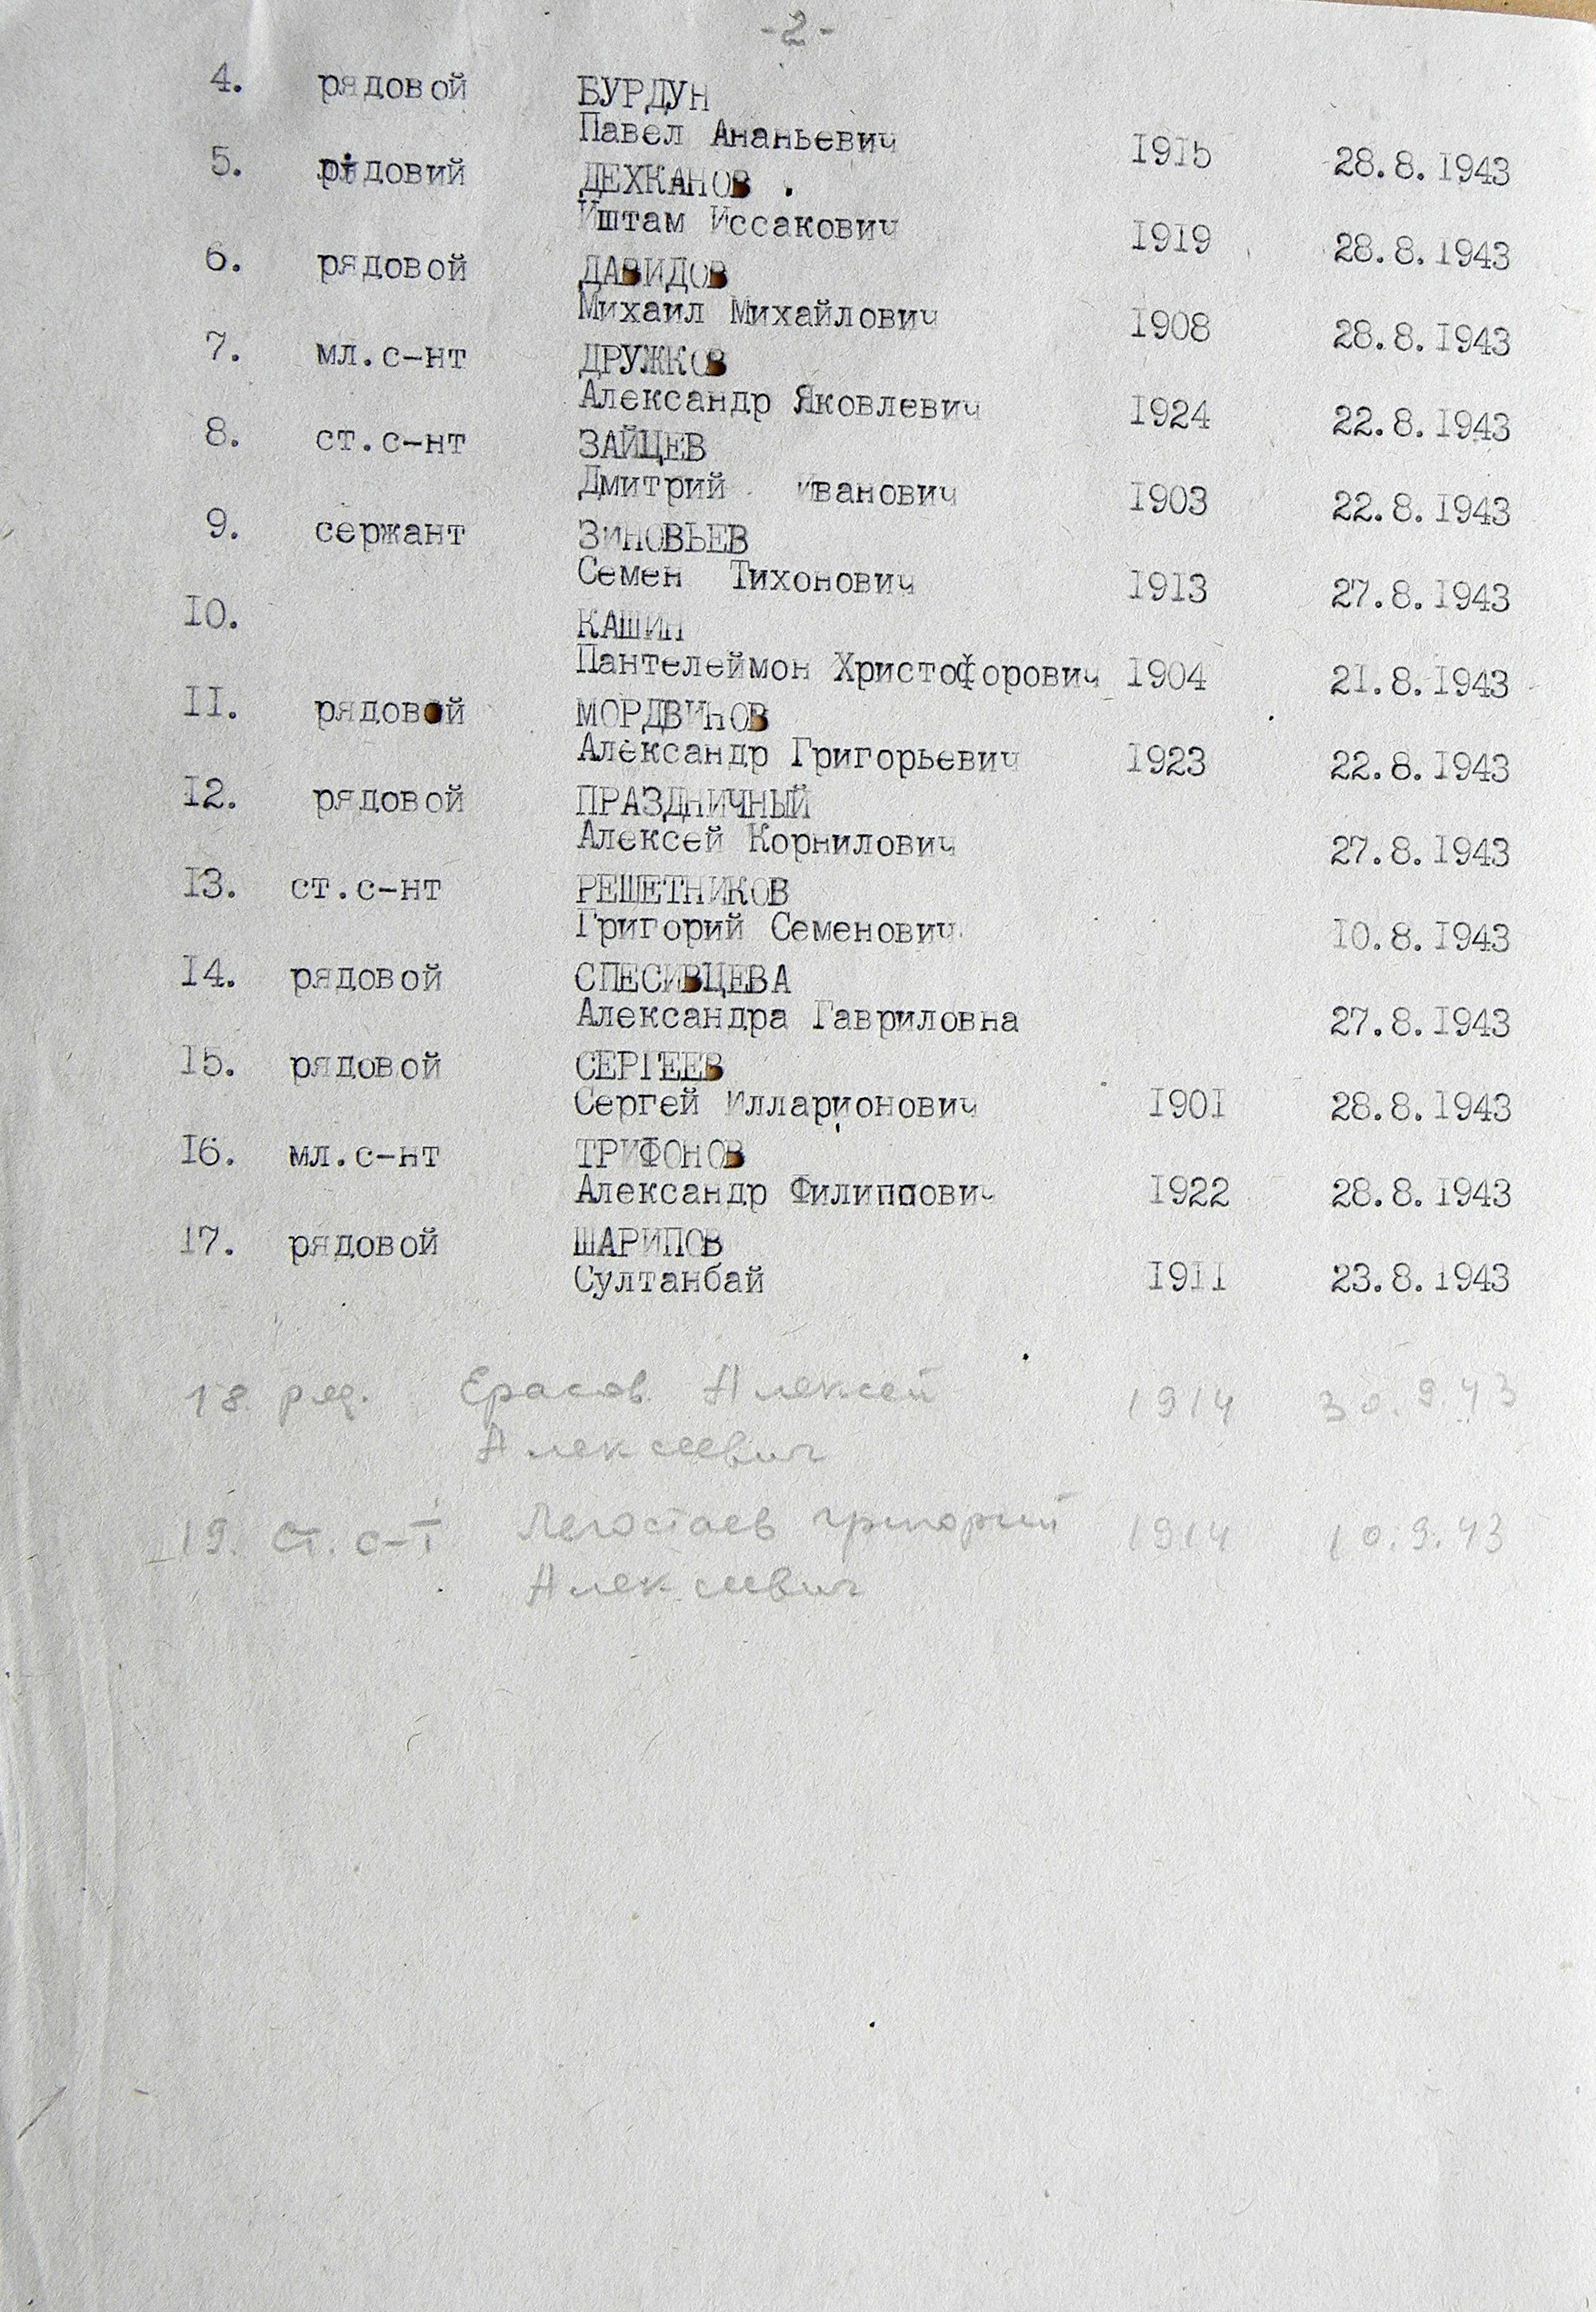 -2-
4. рядовой БУРДУН
Павел Ананьевич 1915 28.8.1943
5. рядовий ДЕХКАНОВ .
Иштам Иссакович 1919 28.8.1943
6. рядовой ДАВИДОВ
Михаил Михайлович 1908 28.8.1943
7. мл.с-нт ДРУЖКОВ
Александр Яковлевич 1924 22.8.1943
8. ст.с-нт ЗАЙЦЕВ
Дмитрий Иванович 1903 22.8.1943
9. сержант ЗИНОВЬЕВ
Семен Тихонович 1913 27.8.1943
10. КАШИН
Пантелеймон Христофорович 1904 21.8.1943
11. рядовой МОРДВИНОВ
Александр Григорьевич 1923 22.8.1943
12. рядовой ПРАЗДНИЧНЫЙ
Алексей Корнилович 27.8.1943
13. ст.с-нт РЕШЕТНИКОВ
Григорий Семенович 10.8.1943
14. рядовой СПЕСИВЦЕВА
Александра Гавриловна 27.8.1943
15. рядовой СЕРГЕЕВ
Сергей Илларионович 1901 28.8.1943
16. мл.с-нт ТРИФОНОВ
Александр Филиппович 1922 28.8.1943
17. рядовой ШАРИПОВ
Султанбай 1911 23.8.1943
18 ряд. Ерасов Алексей 1914 30.9.43
Алексеевич
19. ст. с-т Легостаев григорий 1914 10.9.43
Алексеевич